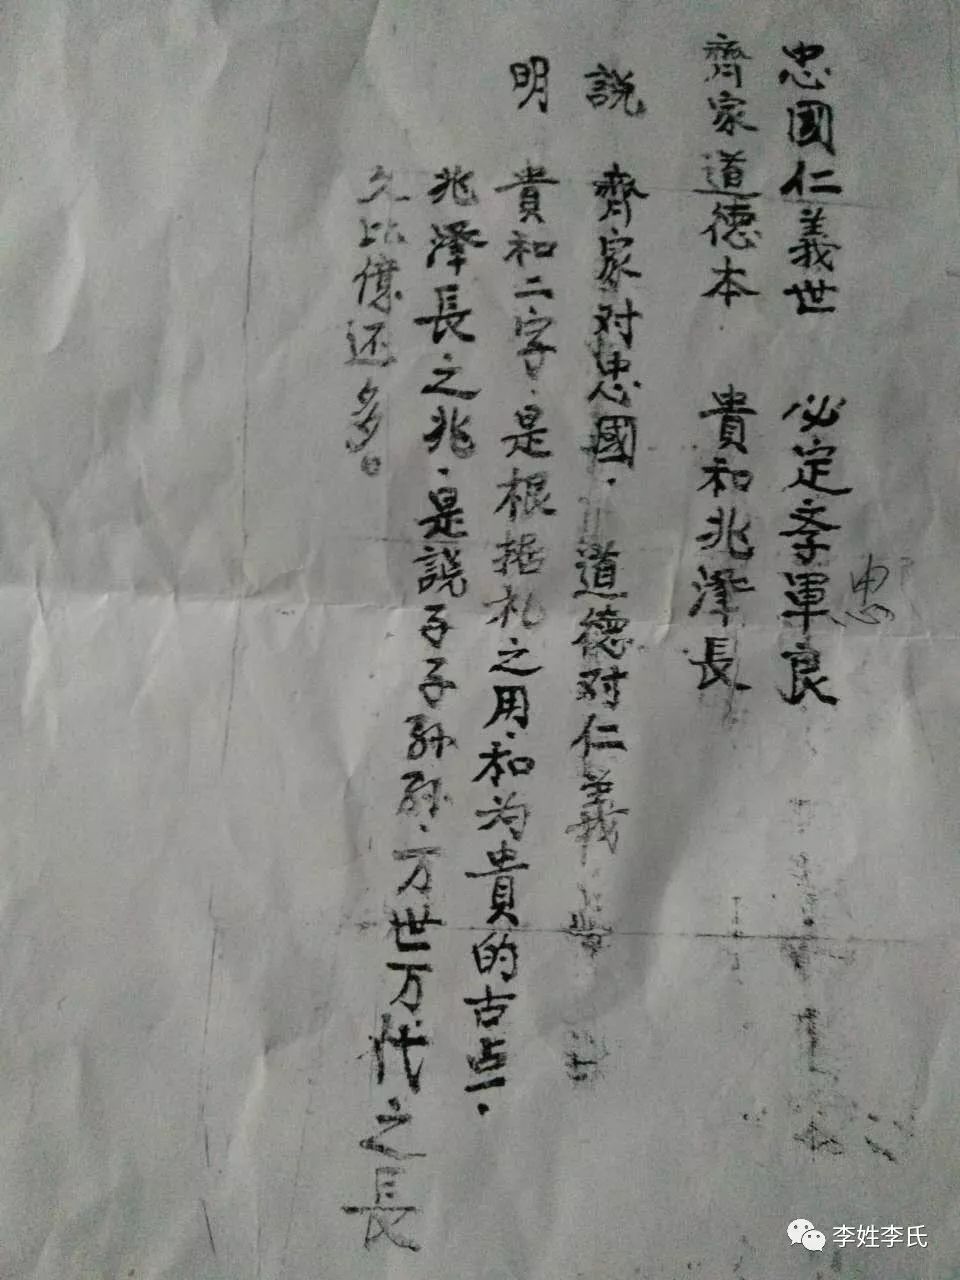 忠國仁義世 必定斈軍良
忠
齊家道德本 貴和兆澤長
說 齊家对忠國．道德对仁義
明 貴和二字．是根据札之用．和为貴的古点．
兆澤長之兆．是說子子孙孙．万世万代之長
久比億还多。
李姓李氏